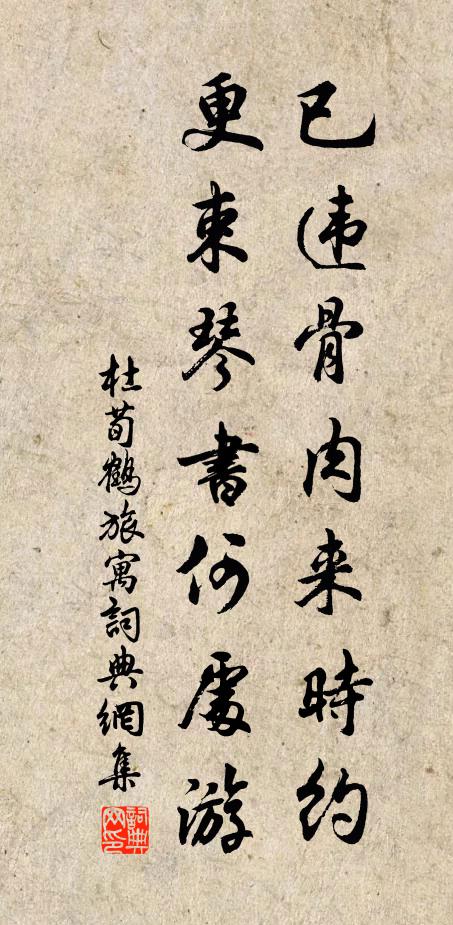 已违骨肉来時約
更束琴書何處游
杜荀鶴旅寓詞典網集
詞典网印